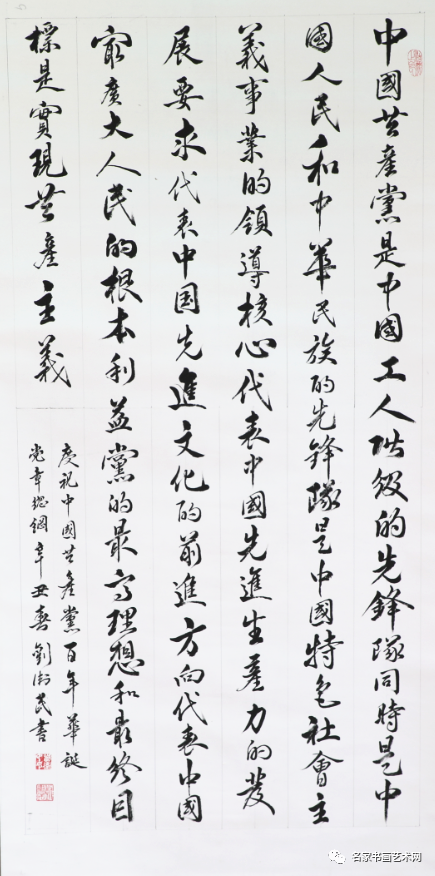 中國共產黨是中國工人階级的先鋒隊同時是中
國人民和中華民族的先鋒隊是中國特色社會主
義事業的領導核心代表中國先進生產力的發
展要求代表中国先進文化的前進方向代表中國
最廣大人民的根本利益黨的最高理想和最終目
標是實現共產主義
慶祝中國共產黨百年華誕
党章總綱辛丑春劉民書
名家书画艺术网